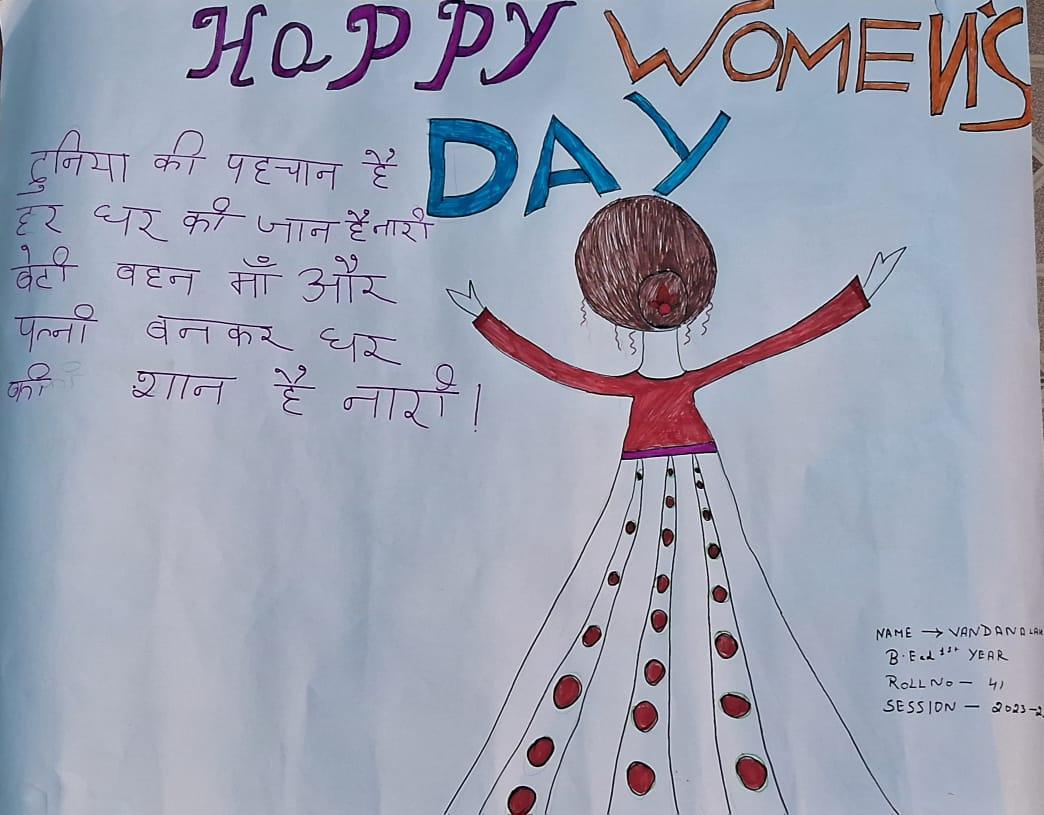 HAPPY WOMEN'S
DAY
दुनिया की पहचान है
हर घर की जान है नारी
बेटी बहन माँ और
पत्नी बनकर घर
की शान है नारी!
NAME → VANDANA
B.Ed 1st YEAR
ROLL NO - 41
SESSION - 2023-2